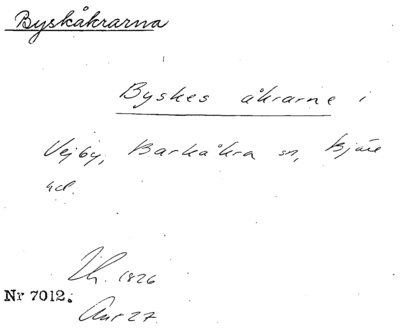 Byskåkrarna
Byskes åkrarne i
Vejby, Barkåkra sn, Bjäre
hd.
Lh. 1826
Nr 7012.
27